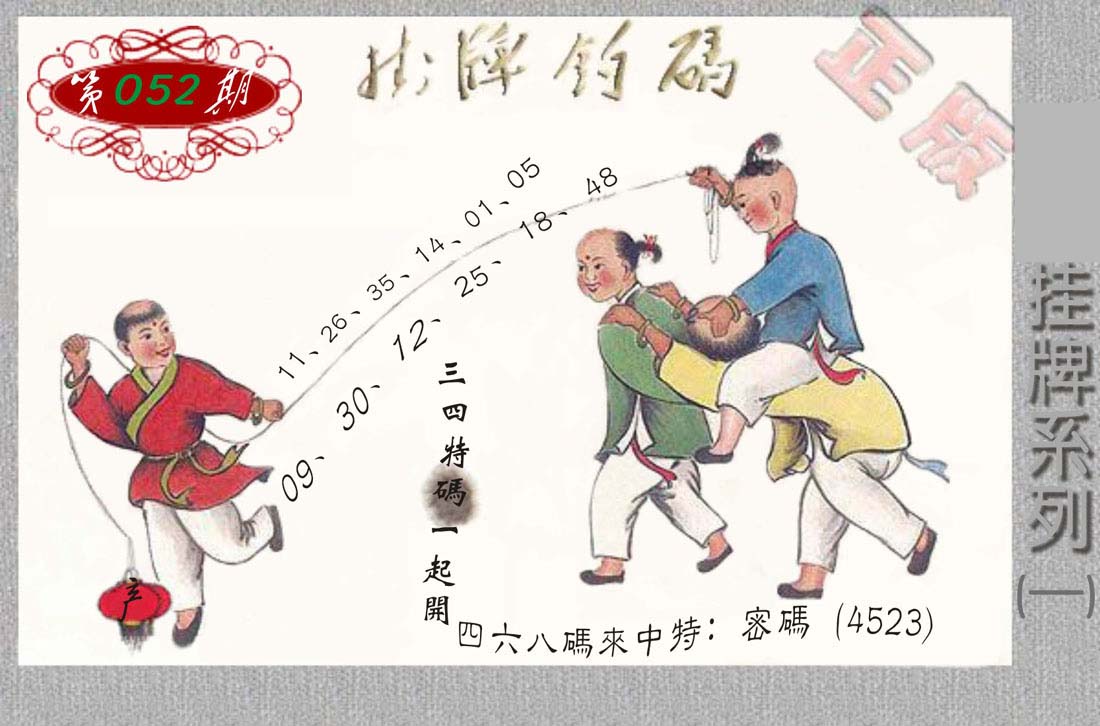 第052期
掛牌釣碼
正版
11、26、35、14、01、05
09、30、12、25、18、48
三四特碼一起開
四六八碼來中特：密碼（4523）
产
挂牌系列(一)